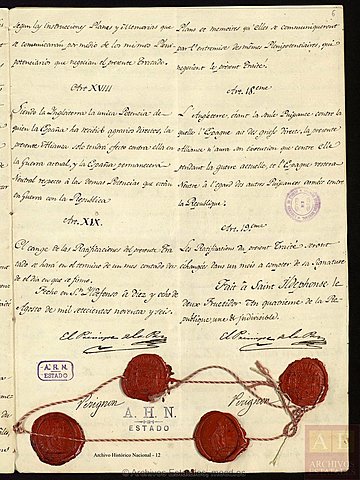 segun las Instrucciones Planes y Memorias que
se comunicarán por medio de los mismos Pleni-
potenciarios que negocian el presente Tratado.
Art. XVIII
Siendo la Inglaterra la unica Potencia de
quien la España ha recibido agravios directos, la
presente Alianza solo tendrá efecto contra ella en
la guerra actual, y la España permanecerá
Neutral respecto à las demas Potencias que están
en Guerra con la Republica
Art. XIX.
El cange de las Ratificaciones del presente Tra-
tado se hará en el termino de un mes contado des-
de el dia en que se firme.
Fecho en Sn. Ildefonso à diez y ocho de
Agosto de mil setecientos noventa y seis.
El Principe de la Paz
Perignon
Plans et memoires qu'elles se communiqueront
par l'entremise des mêmes Plenipotentiaires, qui
negocient le présent Traité.
Art. 18eme
L'Angleterre étant la seule Puissance contre la
quelle l'Espagne ait des griefs directs, la presente
Alliance n'aura son execution que contre elle
pendant la guerre actuelle, et l'Espagne restera
Neutre à l'egard des autres Puissances armées contre
la Republique.
Art. 19eme
Les Ratifications du present Traité seront
échangées dans un mois à compter de sa Signature
Fait à Saint Ildephonse le
deux Fructidor l'an quatrieme de la Re-
publique, une & indivisible.
El Principe de la Paz
Perignon
A.H.N.
ESTADO
A.H.N.
ESTADO
Archivo Histórico Nacional - 12
© Archivos Estatales, mecd.es
ARCHIVO